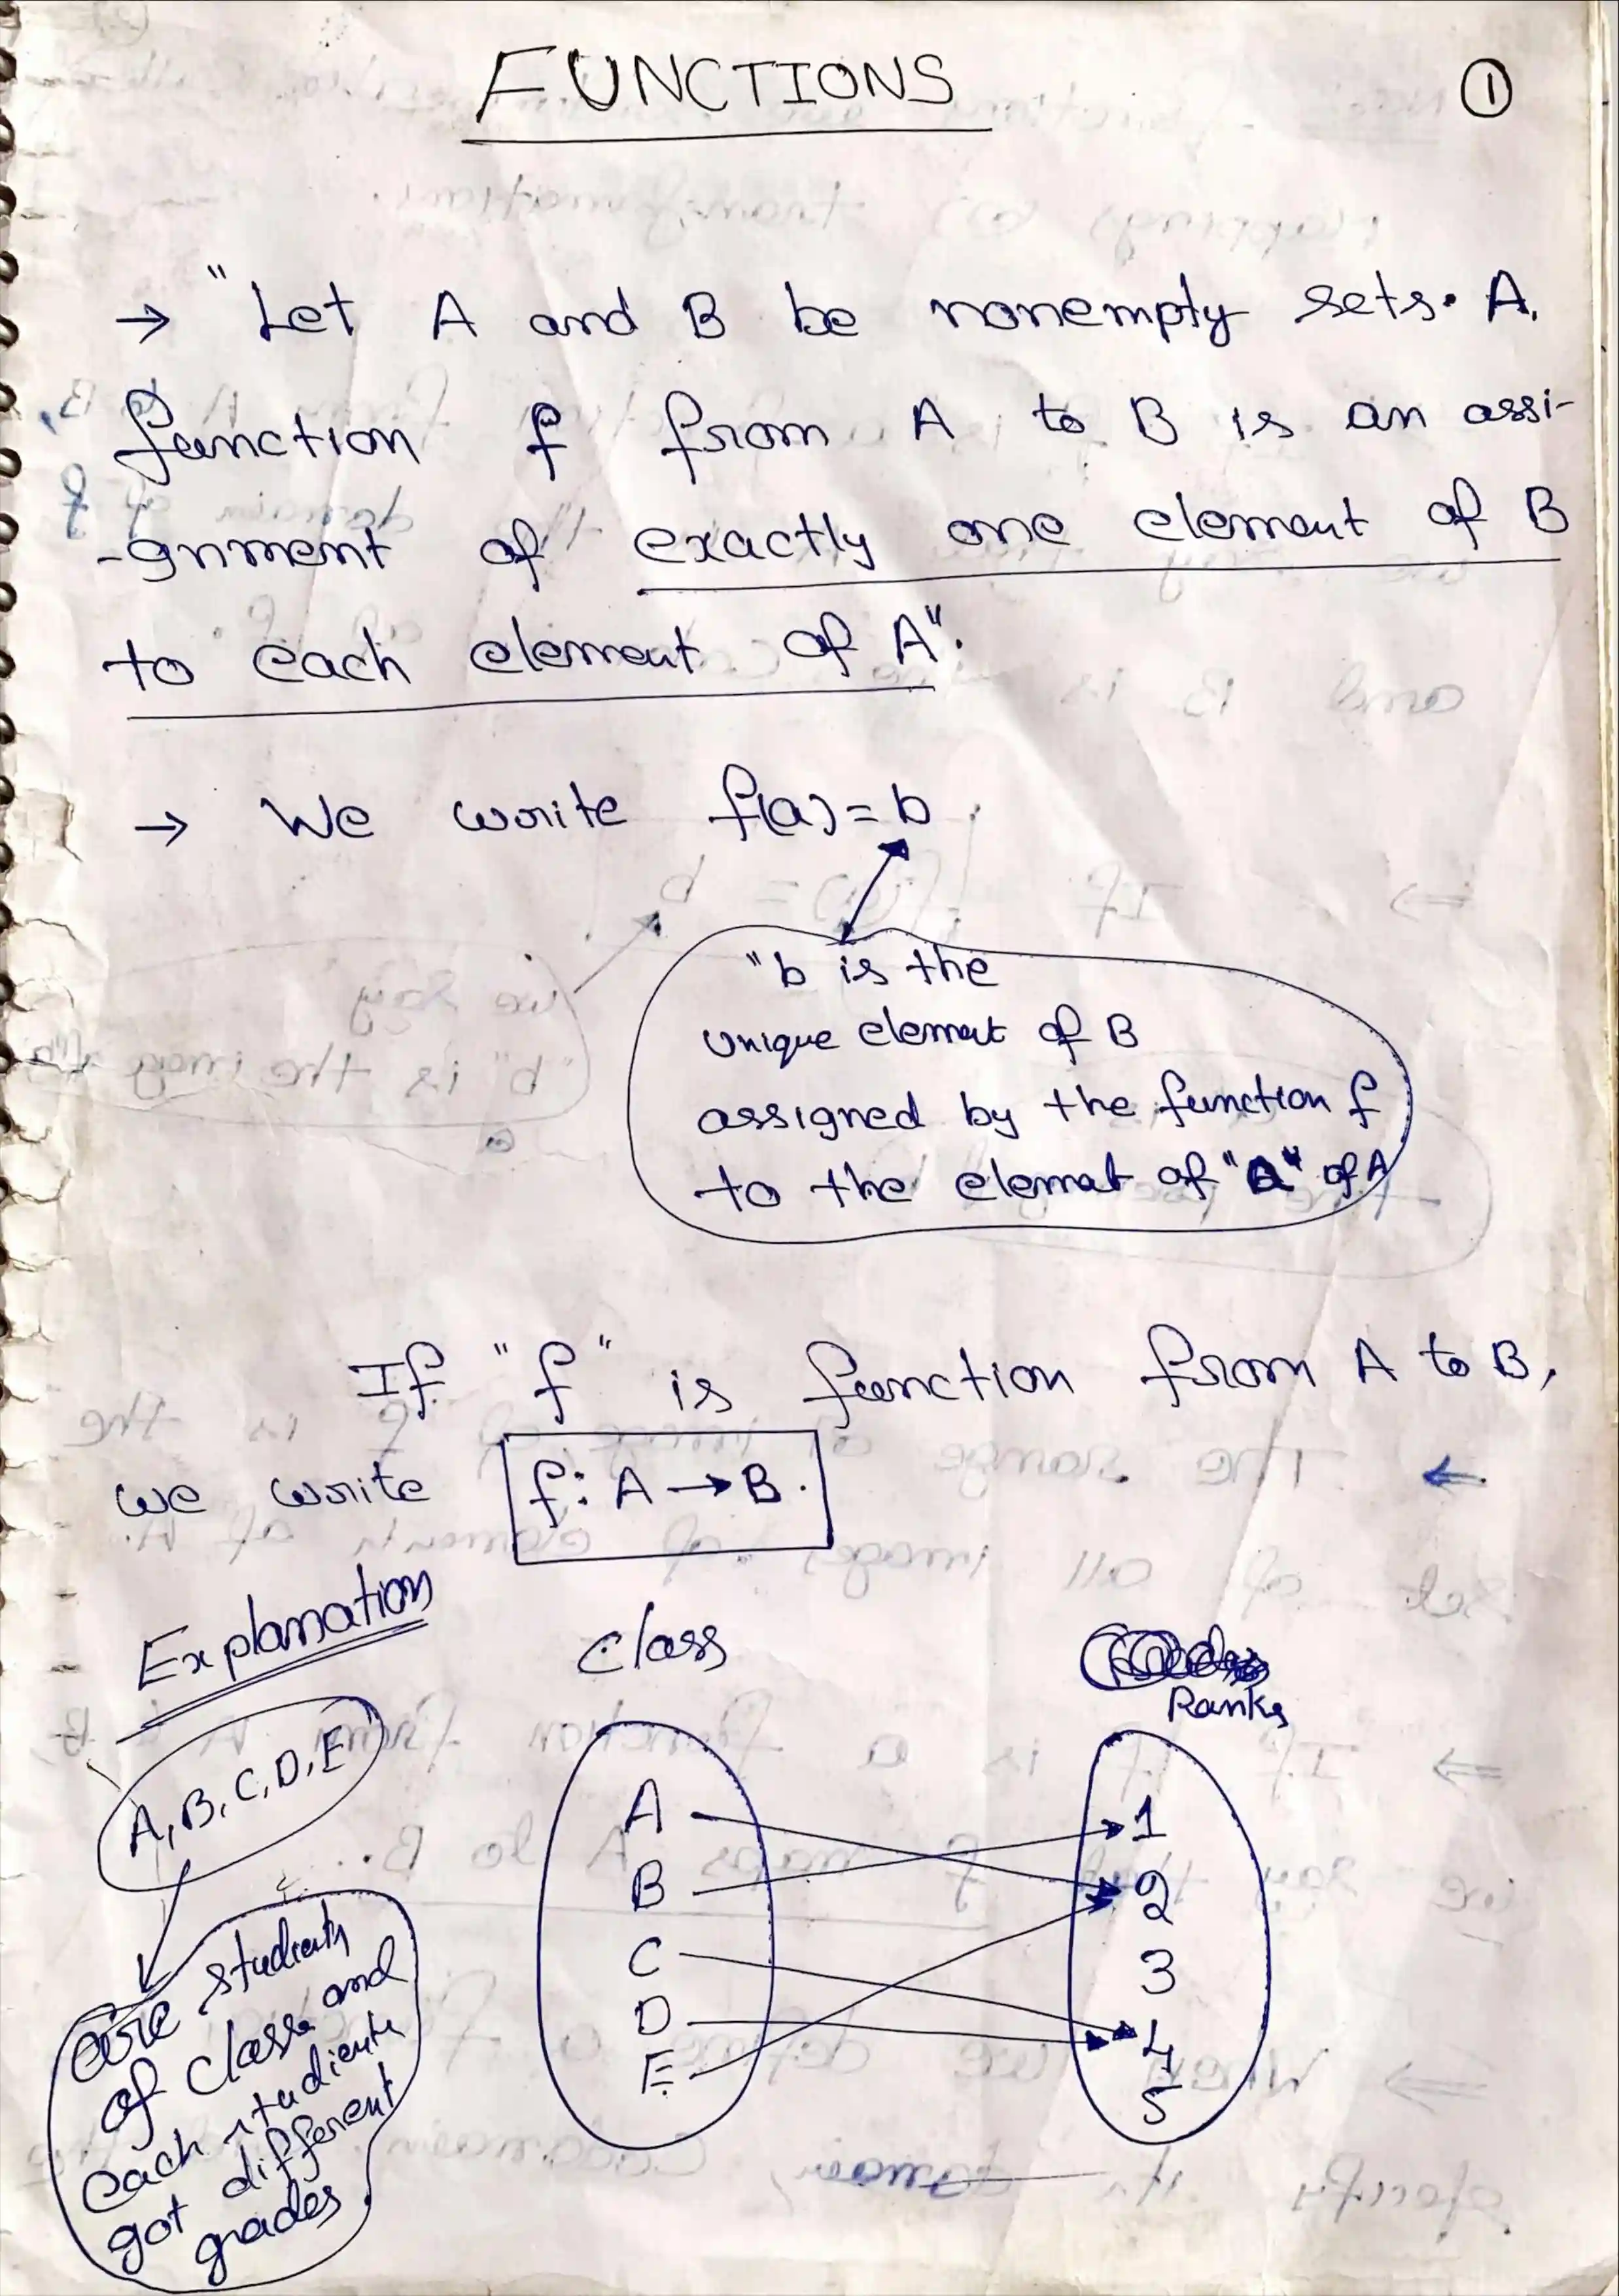 FUNCTIONS
1
→ "Let A and B be nonempty sets. A
function f from A to B is an assi-
-gnment of exactly one element of B
to each element of A".
→ We write f(a)=b.
"b is the
unique element of B
assigned by the function f
to the elemat of "a" of A
If "f" is function from A to B,
we write f: A → B.
Explanation
Class
Ranks
A, B, C, D, E
are students
of class and
each students
got different
grades.
A
B
C
D
E
1
2
3
4
5